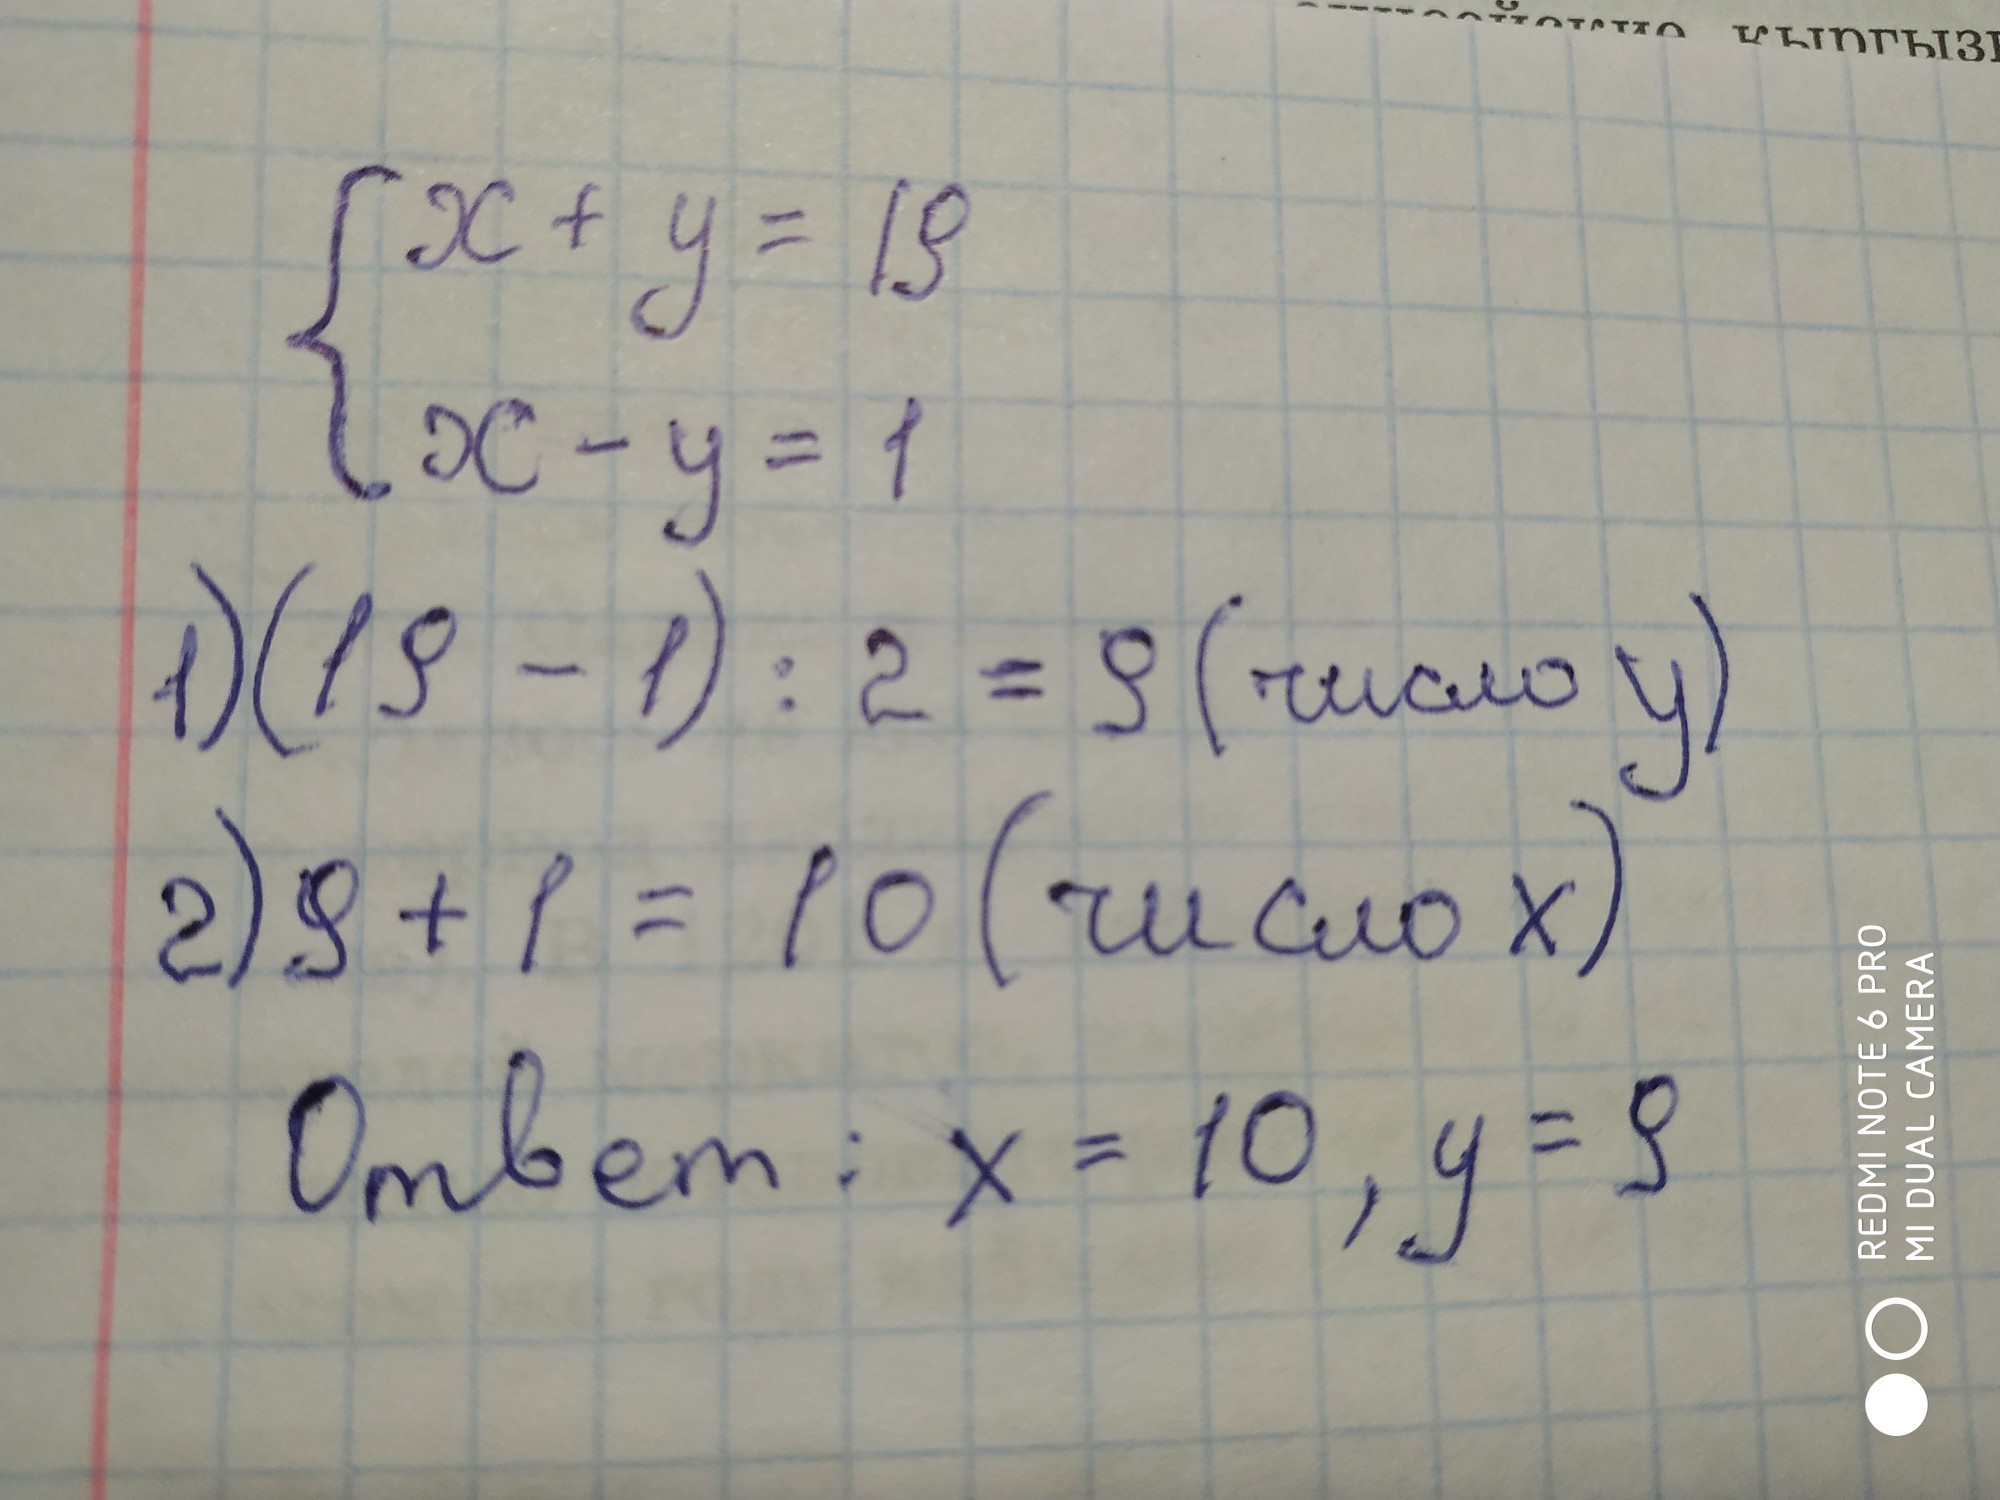 кыргызс
x + y = 19
x - y = 1
1) (19 - 1) : 2 = 9 (число y)
2) 9 + 1 = 10 (число x)
Ответ: x = 10, y = 9
REDMI NOTE 6 PRO
MI DUAL CAMERA